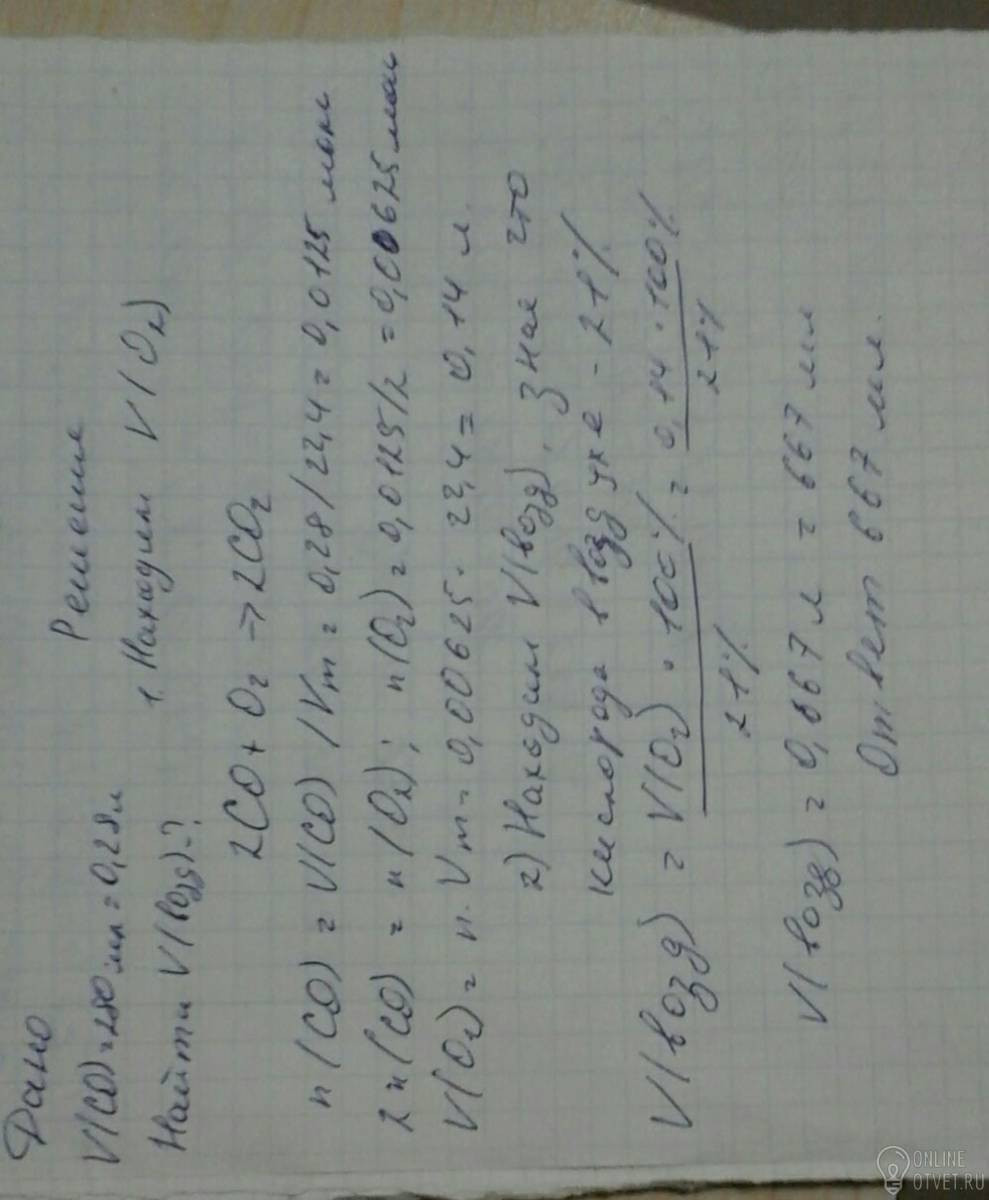 Дано
Решение
V(CO)=280 мл = 0,28 л
1. Находим V(O₂)
Найти V(возд)-?
2CO + O₂ → 2CO₂
n(CO) = V(CO)/Vm = 0,28/22,4 = 0,0125 моль
2n(CO) = n(O₂); n(O₂) = 0,0125/2 = 0,00625 моль
V(O₂) = n·Vm = 0,00625·22,4 = 0,14 л.
2) Находим V(возд). Зная что
кислорода в воздухе - 21%
V(возд) = V(O₂)·100% / 21% = 0,14·100% / 21%
V(возд) = 0,667 л = 667 мл
Ответ 667 мл.
ONLINE
OTVET.RU